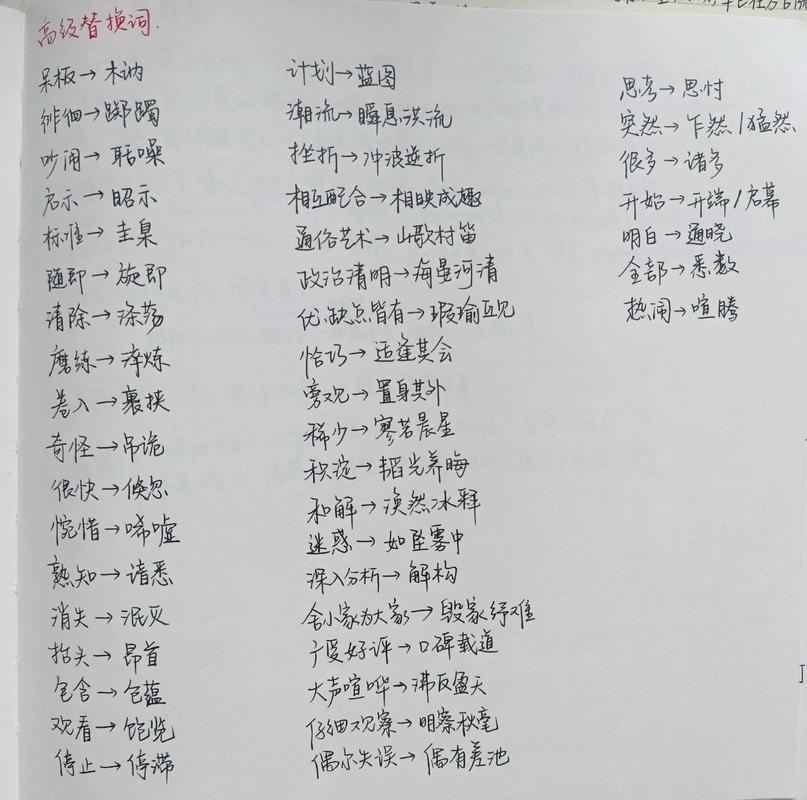 高级替换词.
呆板→木讷
徘徊→踯躅
吵闹→聒噪
启示→昭示
标准→圭臬
随即→旋即
清除→涤荡
磨练→淬炼
卷入→裹挟
奇怪→吊诡
很快→倏忽
惋惜→唏嘘
熟知→谙悉
消失→泯灭
抬头→昂首
包含→包蕴
观看→饱览
停止→停滞
计划→蓝图
潮流→瞬息洪流
挫折→冲波逆折
相互配合→相映成趣
通俗艺术→山歌村笛
政治清明→海晏河清
优缺点皆有→瑕瑜互见
恰巧→适逢其会
旁观→置身其外
稀少→寥若晨星
积淀→韬光养晦
和解→涣然冰释
迷惑→如坠雾中
深入分析→解构
舍小家为大家→毁家纾难
广受好评→口碑载道
大声喧哗→沸反盈天
仔细观察→明察秋毫
偶尔失误→偶有差池
思考→思忖
突然→乍然/猛然
很多→诸多
开始→开端/启幕
明白→通晓
全部→悉数
热闹→喧腾